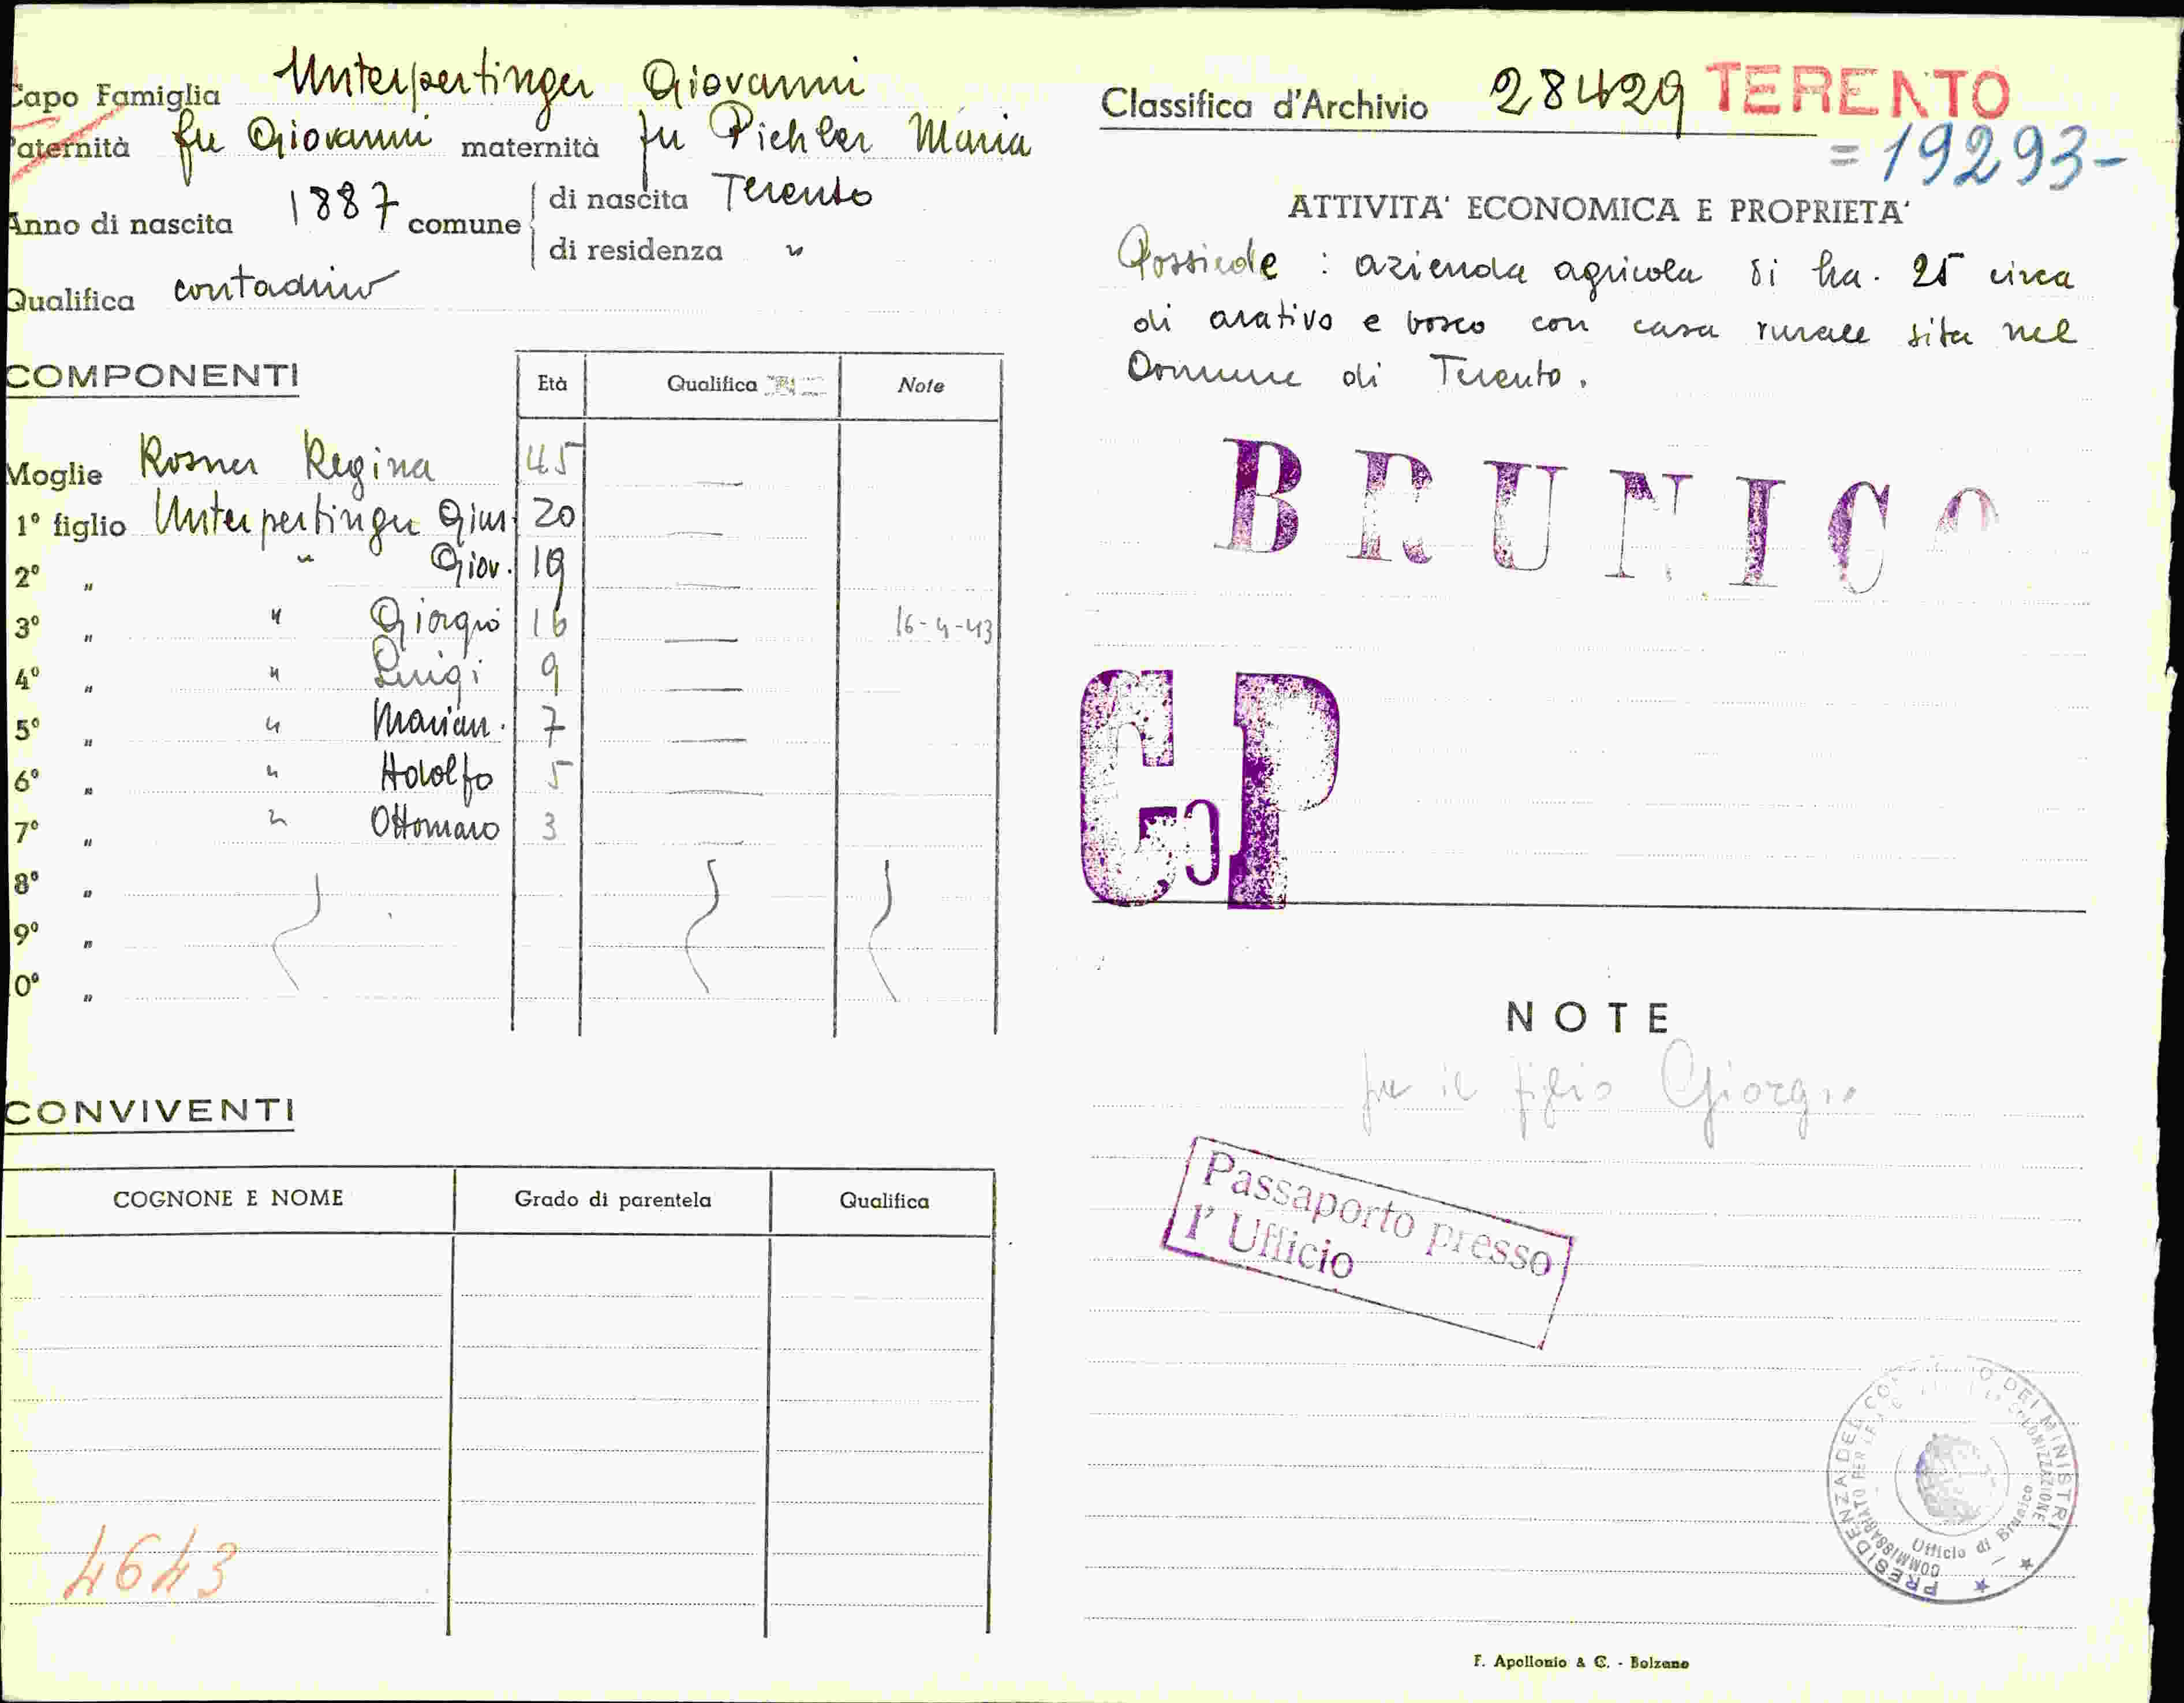 Capo Famiglia Unterpertinger Giovanni
Paternità fu Giovanni maternità fu Pichler Maria
Anno di nascita 1887 comune di nascita Terento
di residenza "
Qualifica contadino
COMPONENTI
Età Qualifica Note
Moglie Rosner Regina 45 —
1º figlio Unterpertinger Gius. 20 —
2º " " Giov. 19 —
3º " " Giorgio 16 — 16-4-43
4º " " Luigi 9 —
5º " " Marian. 7 —
6º " " Adolfo 5 —
7º " " Ottomaro 3 —
8º "
9º "
0º "
CONVIVENTI
COGNONE E NOME Grado di parentela Qualifica
4643
Classifica d'Archivio 28429 TERENTO
=19293-
ATTIVITA' ECONOMICA E PROPRIETA'
Possiede : azienda agricola di ha. 25 circa
di arativo e bosco con casa rurale sita nel
Comune di Terento.
BRUNICO
NOTE
per il figlio Giorgio
Passaporto presso
l' Ufficio
PRESIDENZA DEL CONSIGLIO DEI MINISTRI
COMMISSARIATO PER LE COLONIZZAZIONE
Ufficio di Brunico
F. Apollonio & C. - Bolzano